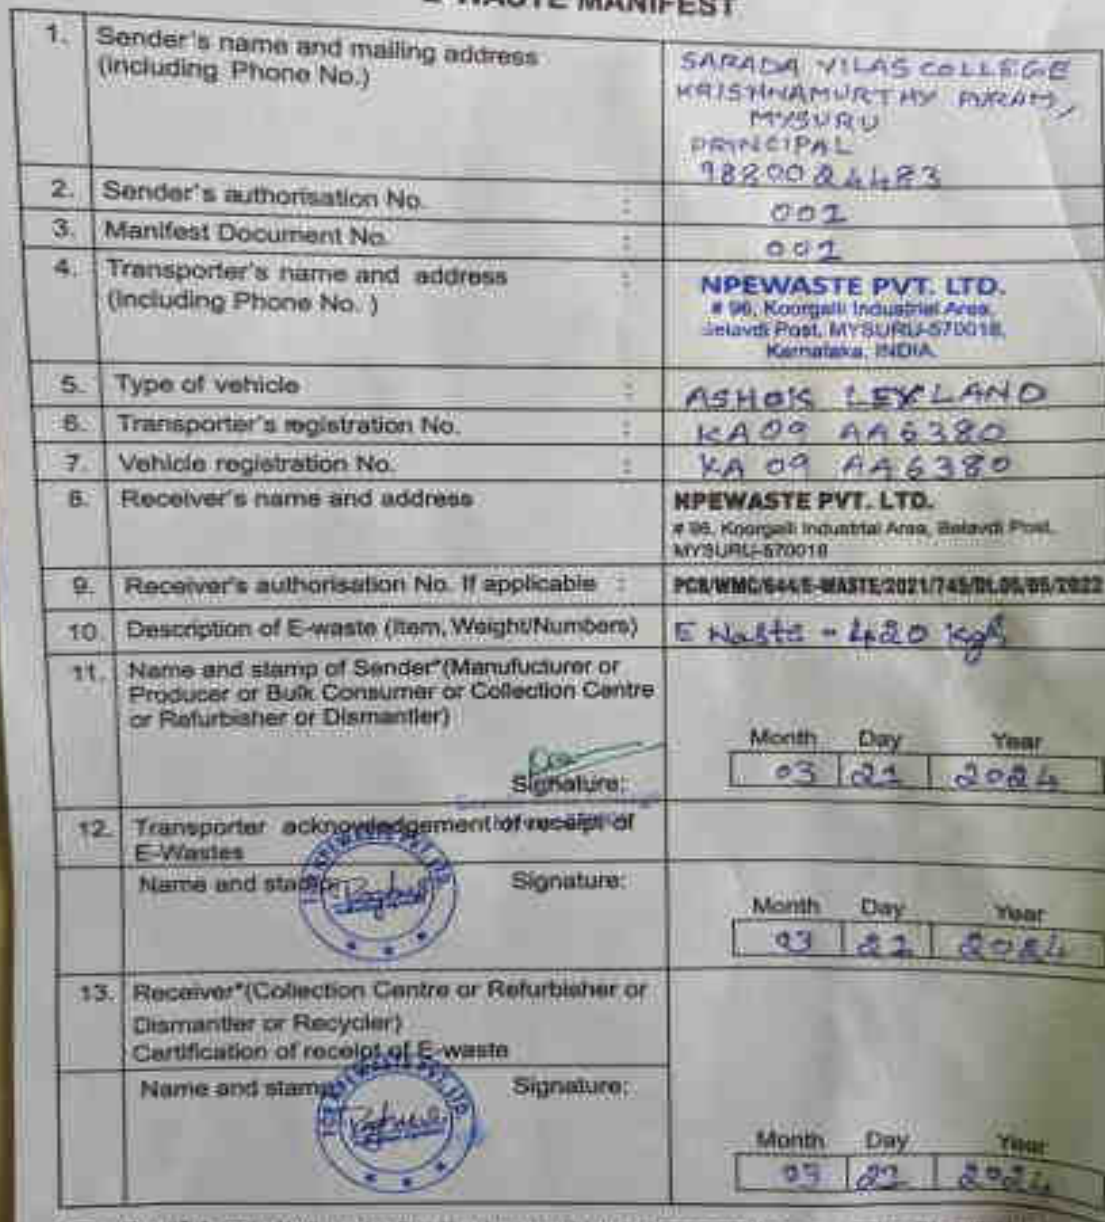 E-WASTE MANIFEST
1. Sender's name and mailing address
(including Phone No.)
SARADA VILAS COLLEGE
KRISHNAMURTHY PURAM,
MYSURU
PRINCIPAL
9880024483
2. Sender's authorisation No. : 001
3. Manifest Document No. : 001
4. Transporter's name and address :
(including Phone No. )
NPEWASTE PVT. LTD.
# 96, Koorgalli Industrial Area,
Belavdi Post, MYSURU-570018,
Karnataka, INDIA.
5. Type of vehicle : ASHOK LEYLAND
6. Transporter's registration No. : KA09 AA6380
7. Vehicle registration No. : KA 09 AA6380
8. Receiver's name and address
NPEWASTE PVT. LTD.
# 96, Koorgalli Industrial Area, Belavdi Post,
MYSURU-570018
9. Receiver's authorisation No. If applicable :
10. Description of E-waste (Item, Weight/Numbers) E Waste - 420 kgs
11. Name and stamp of Sender*(Manufucturer or
Producer or Bulk Consumer or Collection Centre
or Refurbisher or Dismantler)
Month Day Year
Signature: 03 21 2024
12. Transporter acknowledgement of receipt of
E-Wastes
Name and stamp: Signature:
FOR NPEWASTE PVT. LTD.
Month Day Year
03 21 2024
13. Receiver*(Collection Centre or Refurbisher or
Dismantler or Recycler)
Certification of receipt of E-waste
Name and stamp: Signature:
FOR NPEWASTE PVT. LTD.
Month Day Year
03 21 2024